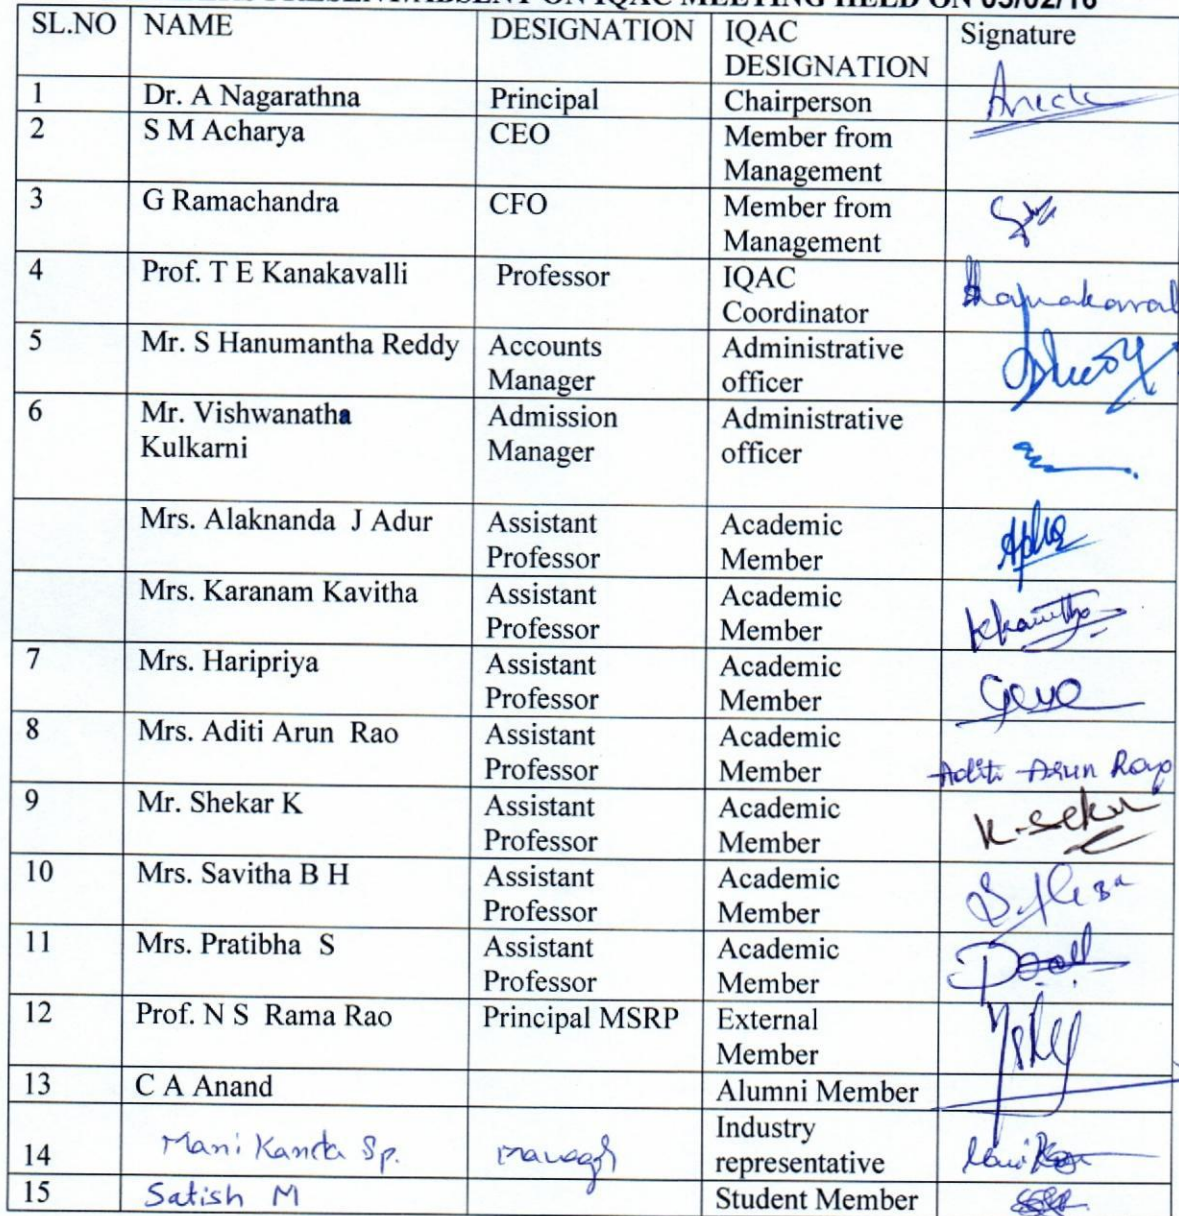 PRESENT/ABSENT ON IQAC MEETING HELD ON 03/02/16
SL.NO NAME DESIGNATION IQAC DESIGNATION Signature
1 Dr. A Nagarathna Principal Chairperson
2 S M Acharya CEO Member from Management
3 G Ramachandra CFO Member from Management
4 Prof. T E Kanakavalli Professor IQAC Coordinator
5 Mr. S Hanumantha Reddy Accounts Manager Administrative officer
6 Mr. Vishwanatha Kulkarni Admission Manager Administrative officer
Mrs. Alaknanda J Adur Assistant Professor Academic Member
Mrs. Karanam Kavitha Assistant Professor Academic Member KKavitha
7 Mrs. Haripriya Assistant Professor Academic Member
8 Mrs. Aditi Arun Rao Assistant Professor Academic Member Aditi Arun Rao
9 Mr. Shekar K Assistant Professor Academic Member
10 Mrs. Savitha B H Assistant Professor Academic Member
11 Mrs. Pratibha S Assistant Professor Academic Member
12 Prof. N S Rama Rao Principal MSRP External Member
13 C A Anand Alumni Member
14 Mani Kanda Sp. Industry representative
15 Satish M Student Member